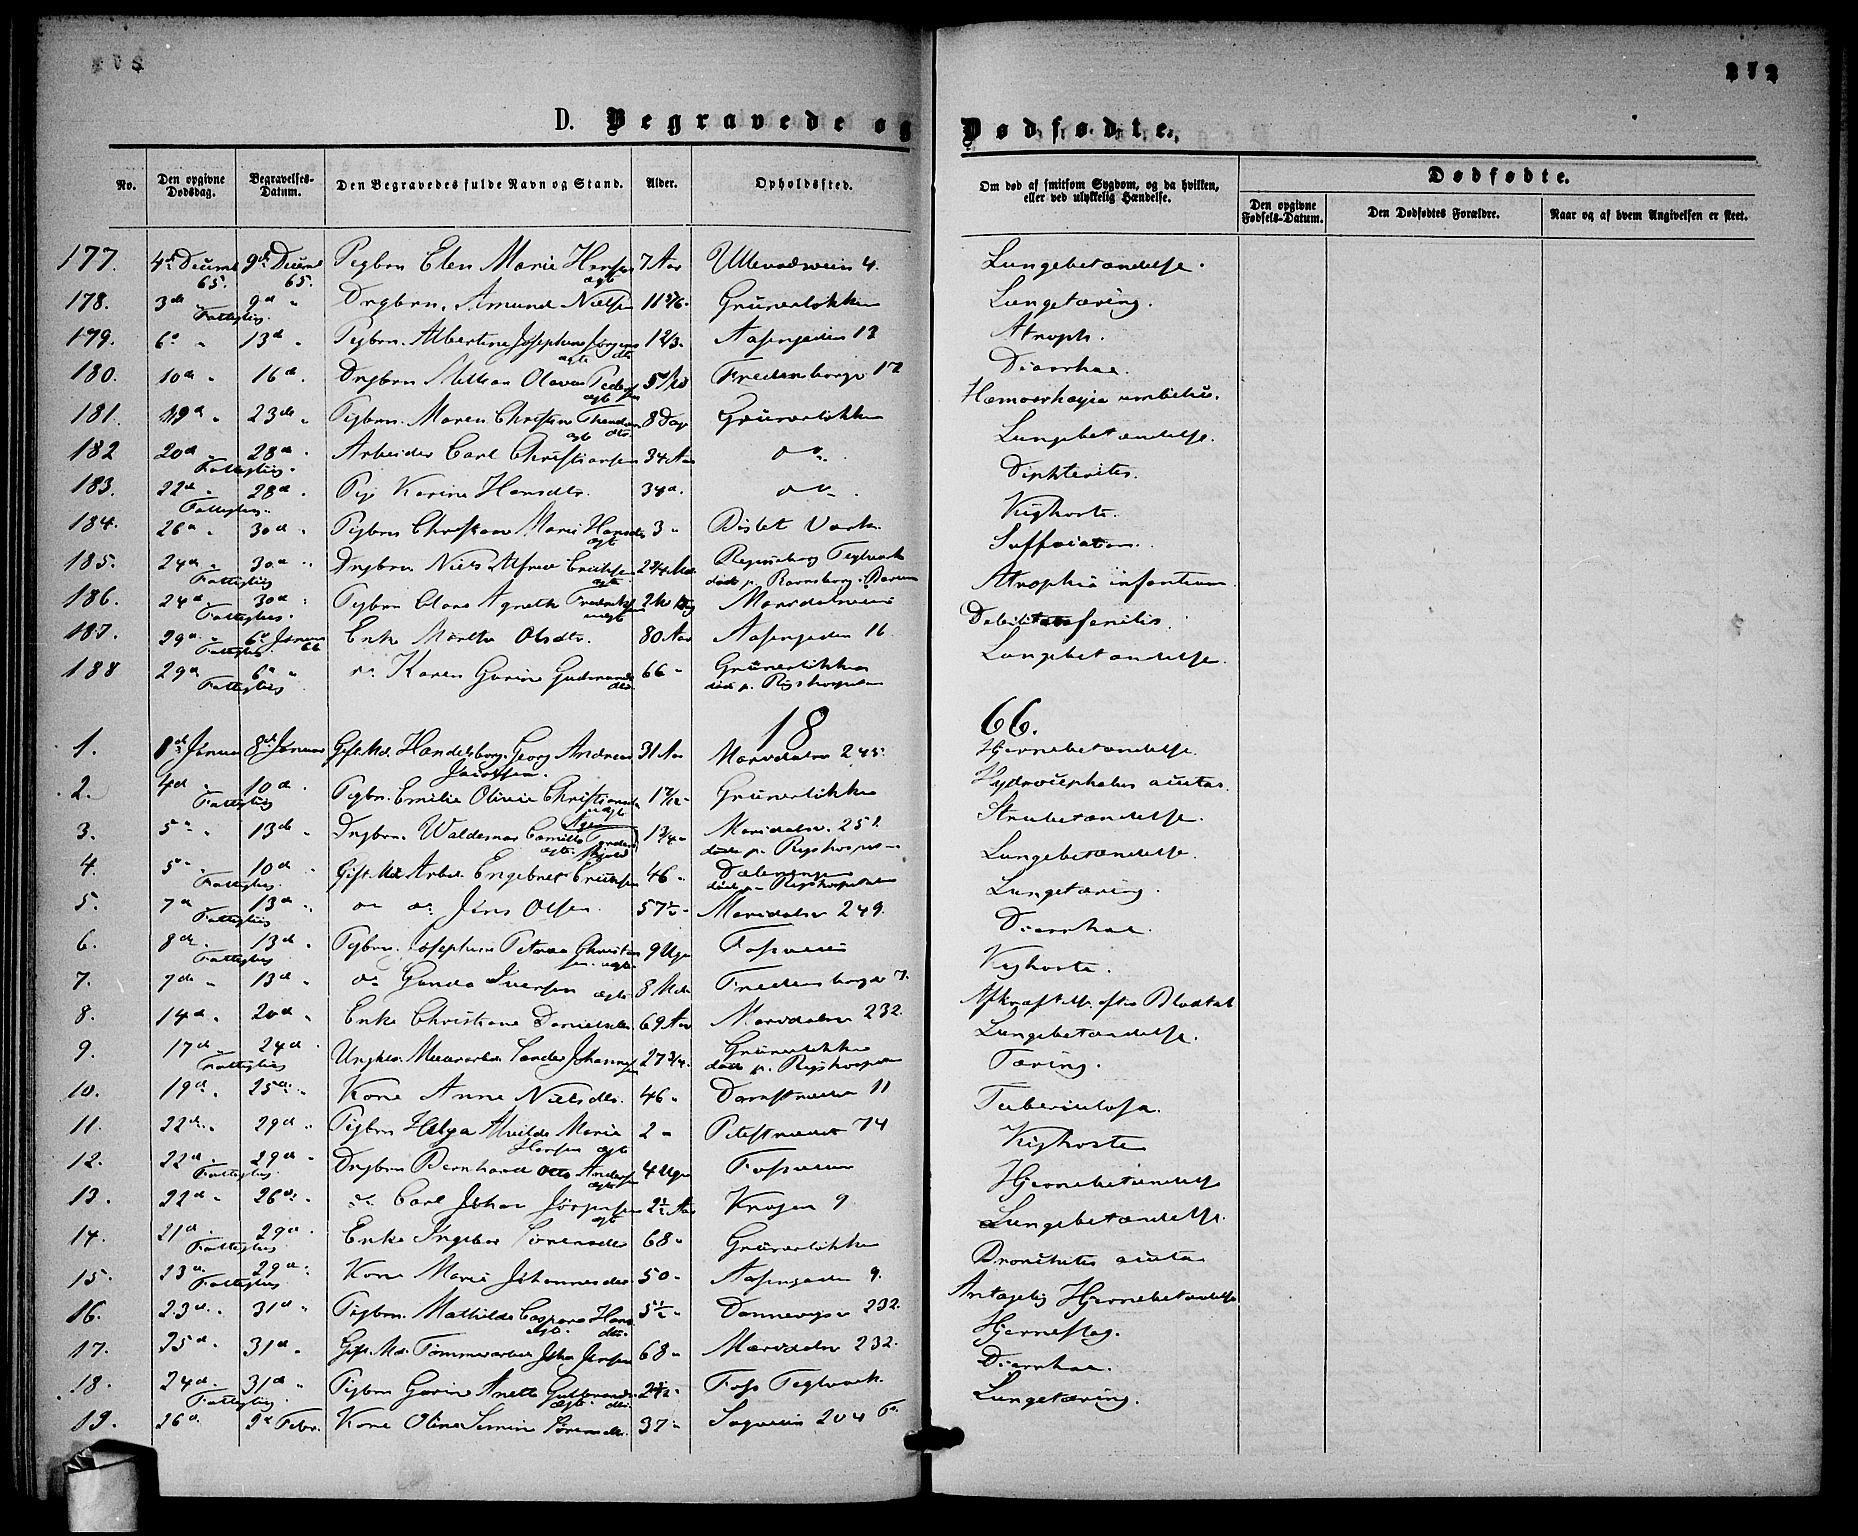 272
D. Begravede og Dødfødte.
No. Den opgivne Dødsdag. Begravelses-Datum. Den Begravedes fulde Navn og Stand. Alder. Opholdssted. Om død af smitsom Sygdom, og da hvilken, eller ved ulykkelig Hændelse. Dødfødte.
Den opgivne Fødsels-Datum. Den Dødfødtes Forældre. Naar og af hvem Angivelsen er skeet.
177. 4de 65. 9de 65. Pigbrn Elen Marie Hansen ægte 7 Aar 4. Lungebetændelse.
178. 3de Fattiglig. 9de " Drgbrn. Amund Nielsen 11 Grünerløkken Lungetæring.
179. 6te " 13de " Pigbrn. Albertine Josephine ægte dtr Aasengaden 13 Atroph.
180. 10de " 16de " Drgbrn Olaves ægte Fredensborgv 12 Diarrhae.
181. 19de " 23de " Pigbrn. Maren Christine ægte dtr 8 Dage Grünerløkken Hæmorrhagia umbilic.
182 20de " Fattiglig. 28de " Arbeider Carl Christiansen 34 Aar do Lungebetændelse.
183. 22de " Fattiglig. 28de " Pige Karine Hansdtr. do Diphterites.
184. 26de " 30de " Pigbrn Christiane Marie ægte 3 " Kighoste.
185. 24de " Fattiglig 30de " Drgbrn Niels Alfred Eriksen ægte Teglverk Suffocation.
186. 24de " Fattiglig. 30de " Pigbrn Clara Agnethe uægte Maridalsveien Atrophia infantum
187. 29de " Fattiglig 6te Januar 66 Enke Marthe Olsdtr. 80 Aar Aasengaden 16 Debilitas senilis.
188 29de Fattiglig 6te " do Karen Gurine dtr. 66 " Grünerløkken død p. Rigshospitalet Lungebetændelse.
18 66.
1. 1ste Januar 8de Januar Gift Md. Handelsborg. Georg Andreas Jacobsen. 31 Aar Maridalsv 245. Hjernebetændelse.
2. 4de " Fattiglig 10de " Pigbrn. Emilie Olivia uægte Grünerløkken Hydrocephalus acutas.
3. 5te " 13de " Drgbrn. Waldemar Camillo ægte 1 3/4 " Maridalsv. 251. død p. Rigshospit Strubebetændelse.
4. 5te " Fattiglig. 10de " Gift Md Arbd. Engebret Eriksen 46 " Dælenengen død p. Rigshospitalet Lungebetændelse.
5. 7de Fattiglig 13de " do do Jens Olsen. 57 1/2 " Maridalsv 249. Lungetæring.
6. 8de " Fattiglig 13de " Pigbrn. Josephine Petrea 9 Uger Fosveien Diarrhae.
7. 9de " 13de " do Gunda Iversen ægte 8 Md. Fredensborgv 7. Kighoste.
8. 14de " 20de " Enke Christiane Danielsdtr 69 Aar Maridalsv 232. Afkræftelse efter Blodtab
9. 17de " Fattiglig 24de " Ungkr. Johannesen 27 3/4 " Grünerløkken død p. Rigshospit Lungebetændelse.
10. 19de " 25de " Kone Anne Nielsdtr. 46 " 11 Tæring.
11. 22de " 29de " Pigbrn Helga Alvilde Marie Hansen ægte 2 " 74 Tuberculosa.
12. 22de " Fattiglig 29de " Drgbrn Bernhard Otto Andersen ægte 4 Uger Fosveien Kighoste
13. 22de " 26de " do Carl Johan Jørgensen ægte 2 1/2 Aar Krogen 9 Hjernebetændelse
14. 21de Fattiglig 29de Enke Ingebor Sørensdtr 68 " Grünerløkken Lungebetændelse.
15. 23de " Fattiglig 29de " Kone Marie Johannesdtr. 50 " Aasengaden 9. Bronchites acuta
16. 23de " 31de " Pigbrn. Mathilde Caspara Hansdtr. ægte 5 1/2 " Dannevigsv 232. Antagelig Hjernebetændelse
17. 25de 31de " Gift Md. Tømmerarbd Johan Jensen 68 " Maridalsv 232. Hjerneslag.
18. 24de " Fattiglig 31de " Pigbrn Gurine Anette Gulbrandsdtr. ægte Fos Teglverk. Diarrhae.
19. 26de 2de Febr. Kone Oline Sørensdtr. 37 " Sagveien 204 Lungetæring.